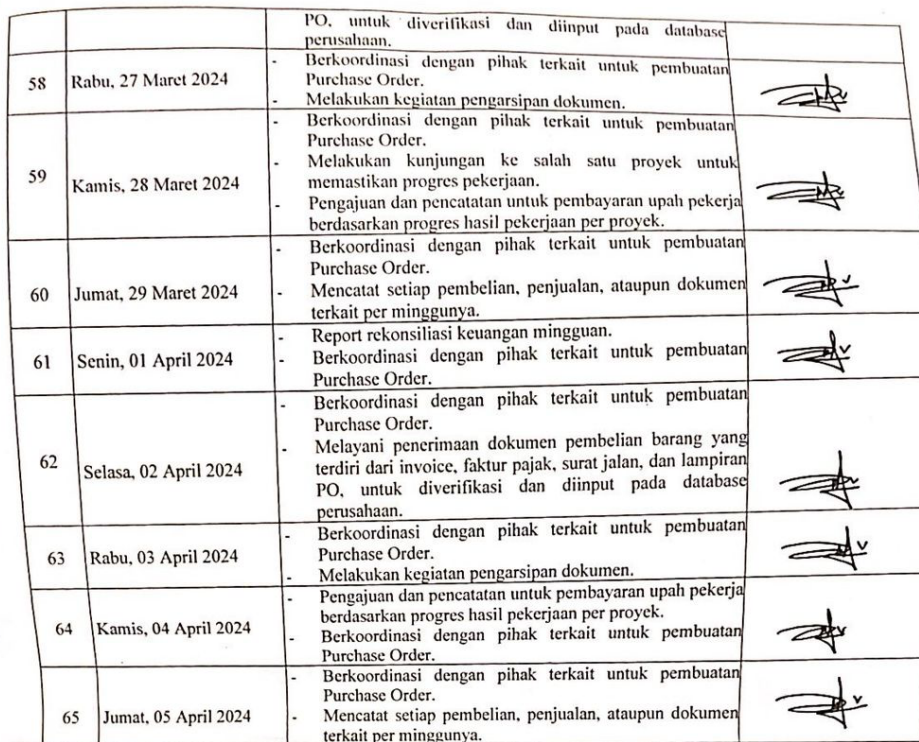 PO, untuk diverifikasi dan diinput pada database
perusahaan.
58 Rabu, 27 Maret 2024
- Berkoordinasi dengan pihak terkait untuk pembuatan
Purchase Order.
- Melakukan kegiatan pengarsipan dokumen.
59 Kamis, 28 Maret 2024
- Berkoordinasi dengan pihak terkait untuk pembuatan
Purchase Order.
- Melakukan kunjungan ke salah satu proyek untuk
memastikan progres pekerjaan.
- Pengajuan dan pencatatan untuk pembayaran upah pekerja
berdasarkan progres hasil pekerjaan per proyek.
60 Jumat, 29 Maret 2024
- Berkoordinasi dengan pihak terkait untuk pembuatan
Purchase Order.
- Mencatat setiap pembelian, penjualan, ataupun dokumen
terkait per minggunya.
61 Senin, 01 April 2024
- Report rekonsiliasi keuangan mingguan.
- Berkoordinasi dengan pihak terkait untuk pembuatan
Purchase Order.
62 Selasa, 02 April 2024
- Berkoordinasi dengan pihak terkait untuk pembuatan
Purchase Order.
- Melayani penerimaan dokumen pembelian barang yang
terdiri dari invoice, faktur pajak, surat jalan, dan lampiran
PO, untuk diverifikasi dan diinput pada database
perusahaan.
63 Rabu, 03 April 2024
- Berkoordinasi dengan pihak terkait untuk pembuatan
Purchase Order.
- Melakukan kegiatan pengarsipan dokumen.
64 Kamis, 04 April 2024
- Pengajuan dan pencatatan untuk pembayaran upah pekerja
berdasarkan progres hasil pekerjaan per proyek.
- Berkoordinasi dengan pihak terkait untuk pembuatan
Purchase Order.
65 Jumat, 05 April 2024
- Berkoordinasi dengan pihak terkait untuk pembuatan
Purchase Order.
- Mencatat setiap pembelian, penjualan, ataupun dokumen
terkait per minggunya.